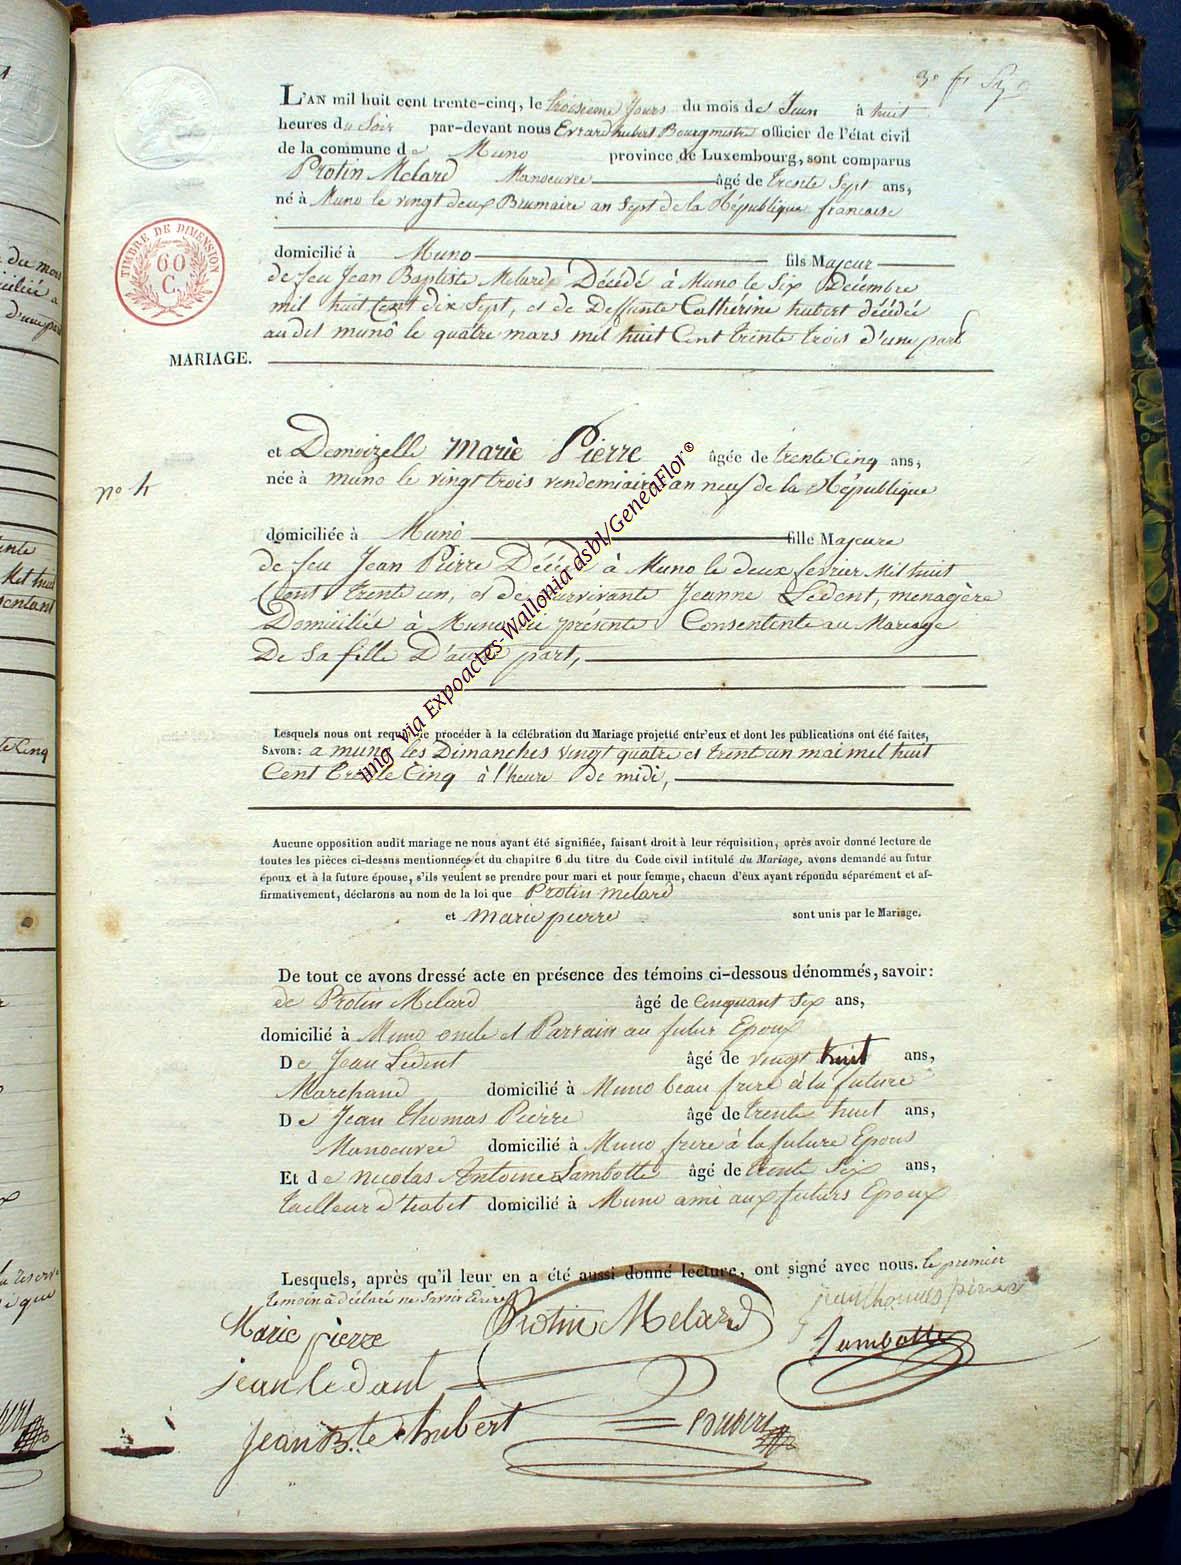 L'AN mil huit cent trente-cinq, le troisieme Jours du mois de Juin à huit
heures du Soir par-devant nous Evrard hubert Bourgmestre officier de l'état civil
de la commune de Muno province de Luxembourg, sont comparus
Protin Melard Manoeuvre âgé de trente Sept ans,
né à Muno le vingt deux Brumaire an Sept de la République francaise
TIMBRE DE DIMENSION
60
C.
domicilié à Muno fils Majeur
de feu Jean Baptiste Melard Décédé à Muno le Six Décembre
mil huit Cent dix Sept, et de Deffunte Cathérine hubert décédée
au dit munô le quatre mars mil huit Cent trente trois d'une part
MARIAGE.
et Demoizelle Marie Pierre âgée de trente Cinq ans,
née à muno le vingt trois vendemiaire an neuf de la République
no 4
domiciliée à Munô fille Majeure
de feu Jean Pierre Décédé à Muno le deux fevrier Mil huit
Cent trente un, et de Survivante Jeanne Ledent, menagère
Domiciliée à Muno ici présente Consentente au Mariage
De Sa fille D'autre part,
Lesquels nous ont requis de procéder à la célébration du Mariage projetté entr'eux et dont les publications ont été faites,
SAVOIR: a muno les Dimanches vingt quatre et trent un mai mil huit
Cent trente Cinq à l'heure de midi,
Aucune opposition audit mariage ne nous ayant été signifiée, faisant droit à leur réquisition, après avoir donné lecture de
toutes les pièces ci-dessus mentionnées et du chapitre 6 du titre du Code civil intitulé du Mariage, avons demandé au futur
époux et à la future épouse, s'ils veulent se prendre pour mari et pour femme, chacun d'eux ayant répondu séparément et af-
firmativement, déclarons au nom de la loi que Protin melard
et marie pierre sont unis par le Mariage.
De tout ce avons dressé acte en présence des témoins ci-dessous dénommés, savoir:
de Protin Melard âgé de Cinquant Six ans,
domicilié à Muno oncle et Parrain au futur Epoux
De Jean Ledent âgé de vingt huit ans,
Marchand domicilié à Muno beau frere à la future
De Jean thomas Pierre âgé de trente huit ans,
Manoeuvre domicilié à Muno frere à la future Epous
Et de nicolas Antoine Lambotte âgé de trente Six ans,
tailleur d'habit domicilié à Muno ami aux futurs Epoux
Lesquels, après qu'il leur en a été aussi donné lecture, ont signé avec nous. le premier
temoin à déclaré ne Savoir Ecrire
Marie pierre Protin Melard jean thomas pierre
jean le dant Lambotte
jean Bte hubert hubert
img via Expoactes-Wallonia asbl/GeneaFlor®